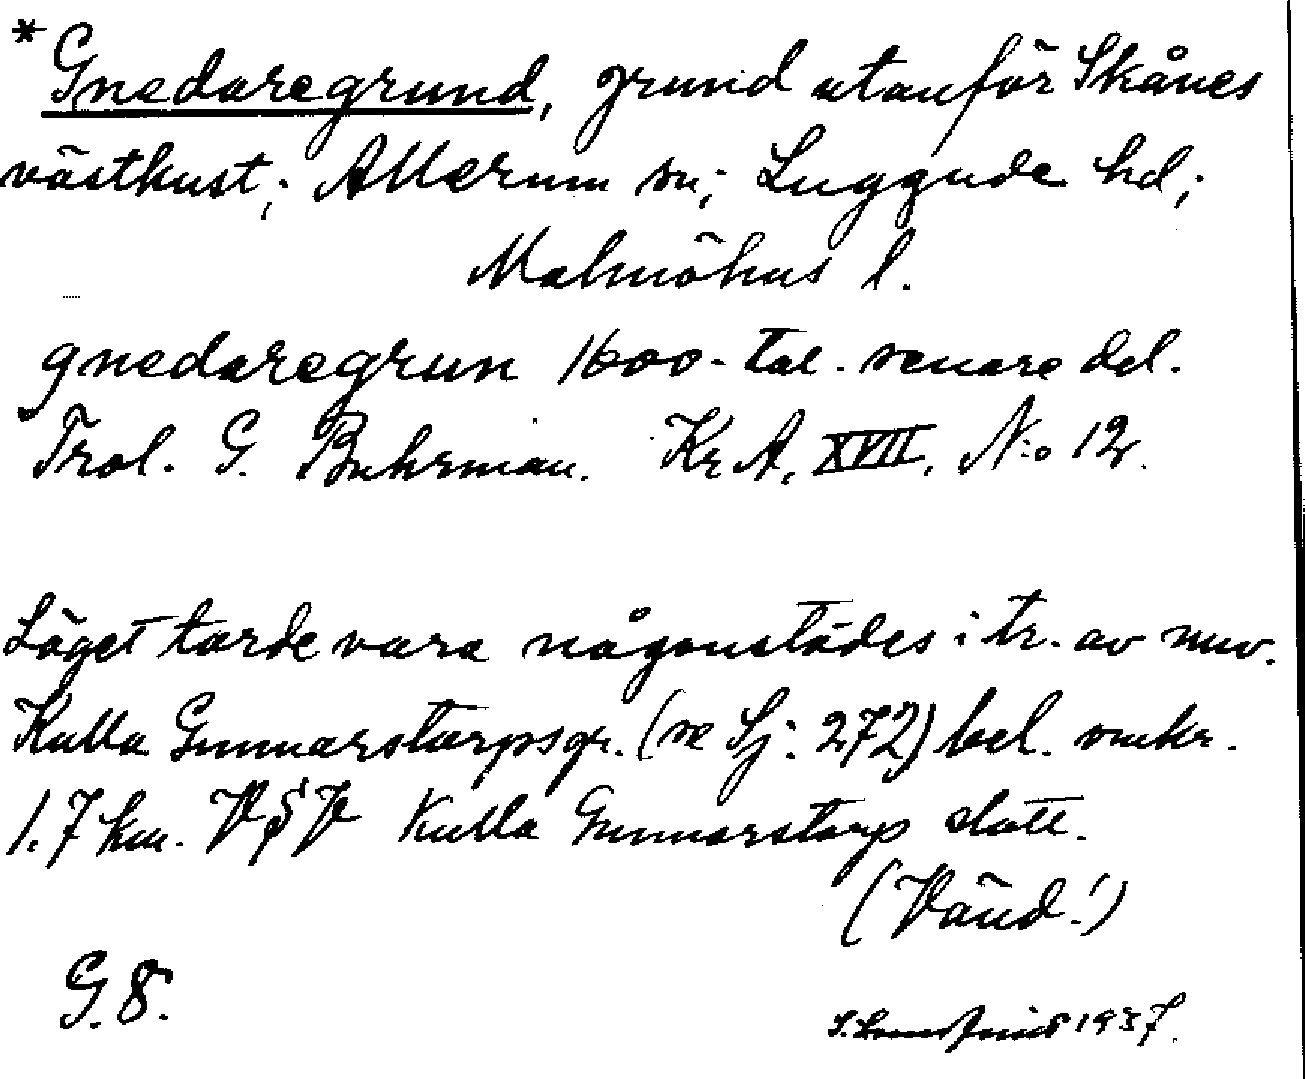 * Gnedaregrund, grund utanför Skånes
västkust; Allerum sn; Luggude hd;
Malmöhus l.
gnedaregrun 1600-tal. senare del.
Trol. G. Buhrman. Kr A, XVII, N:o 12.
Läget torde vara någonstädes i tr. av nuv.
Kulla Gunnarstorpsgr. (se Sj: 272) bel. omkr.
1.7 km. V§V Kulla Gunnarstorp slott.
(Vänd!)
G. 8.
1937.